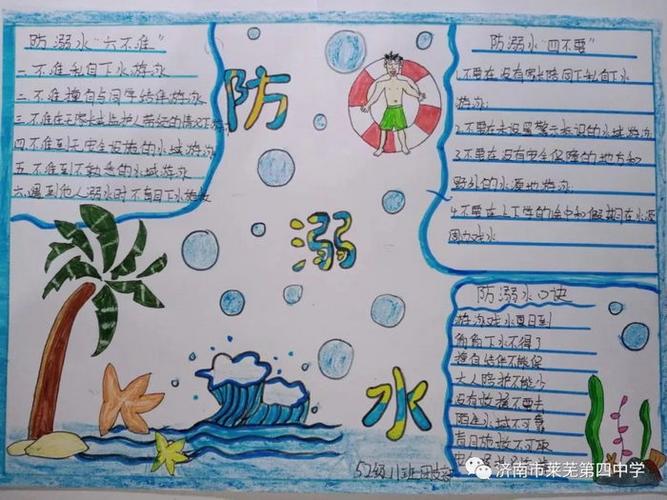 防溺水"六不准"
一.不准私自下水游泳
二.不准擅自与同学结伴游泳
三.不准在无家长或监护人带领的情况下游泳
四.不准到无安全设施的水域游泳
五.不准到不熟悉的水域游泳
六.遇到他人溺水时不盲目下水施救
防
溺
水
防溺水"四不要"
1.不要在没有家长陪同下私自下水
游泳
2.不要在未设置警示标识的水域游泳
3.不要在没有安全保障的地方和
野外的水源地游泳
4.不要在上下学的途中和假期在水源
周边戏水
防溺水口诀
游泳戏水夏日到
匍匐下水不得了
擅自结伴不能保
大人陪护不能少
没有救援不要去
陌生水域不可靠
盲目施救不可取
52级11班
济南市莱芜第四中学